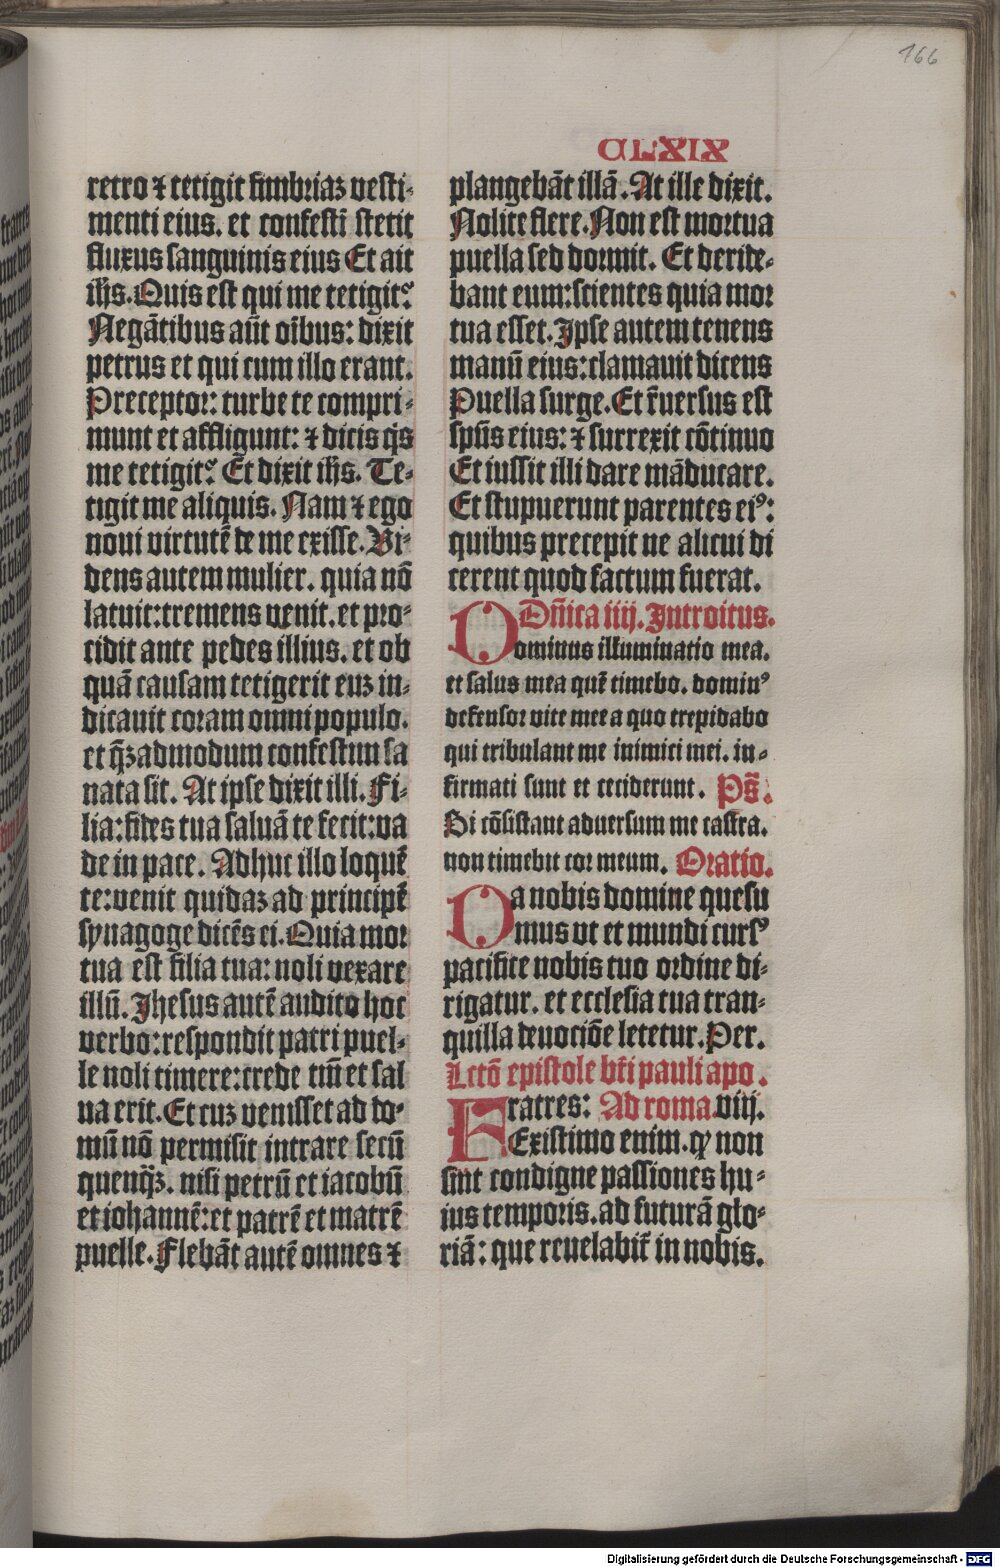 166
CLXIX
retro ⁊ tetigit fimbriaꝫ vesti-
menti eius. et confesti̅ stetit
fluxus sanguinis eius Et ait
ih̅s. Quis est qui me tetigit?
Nega̅tibus au̅t oi̅bus: dixit
petrus et qui cum illo erant.
Preceptor: turbe te compri-
munt et affligunt: ⁊ dicis q̇s
me tetigit? Et dixit ih̅s. Te-
tigit me aliquis. Nam ⁊ ego
noui virtute̅ de me exisse. Vi-
dens autem mulier. quia no̅
latuit: tremens venit. et pro-
cidit ante pedes illius. et ob
qua̅ causam tetigerit euꝫ in-
dicauit coram omni populo.
et q̅ꝫadmodum confestim sa
nata sit. At ipse dixit illi. Fi-
lia: fides tua salua̅ te fecit: va
de in pace. Adhuc illo loque̅
te: venit quidaꝫ ad principe̅
synagoge dice̅s ei. Quia mor
tua est filia tua: noli vexare
illu̅. Jhesus aute̅ audito hoc
verbo: respondit patri puel-
le noli timere: crede tm̅ et sal
ua erit. Et cuꝫ venisset ad do-
mu̅ no̅ permisit intrare secu̅
quenq̅ꝫ. nisi petru̅ et iacobu̅
et iohanne̅: et patre̅ et matre̅
puelle. Fleba̅t aute̅ omnes ⁊
plangeba̅t illa̅. At ille dixit.
Nolite flere. Non est mortua
puella sed dormit. Et deride-
bant eum: scientes quia mor
tua esset. Ipse autem tenens
manu̅ eius: clamauit dicens
Puella surge. Et r̅uersus est
sps̅ eius: ⁊ surrexit co̅tinuo
Et iussit illi dare ma̅ducare.
Et stupuerunt parentes eiꝰ:
quibus precepit ne alicui di
cerent quod factum fuerat.
Dn̅ica iiij. Introitus.
Dominus illuminatio mea.
et salus mea que̅ timebo. dominꝰ
defensor vite mee a quo trepidabo
qui tribulant me inimici mei. in-
firmati sunt et ceciderunt. Ps̅.
Si co̅sistant aduersum me castra.
non timebit cor meum. Oratio.
Da nobis domine quesu
mus vt et mundi cursꝰ
pacifice nobis tuo ordine di-
rigatur. et ecclesia tua tran-
quilla deuocio̅e letetur. Per.
Lcto̅ epistole bt̅i pauli apo.
Fratres: Ad roma. viij.
Existimo enim. ꝙ non
sint condigne passiones hu-
ius temporis. ad futura̅ glo-
ria̅: que reuelabit̅ in nobis.
Digitalisierung gefördert durch die Deutsche Forschungsgemeinschaft - DFG